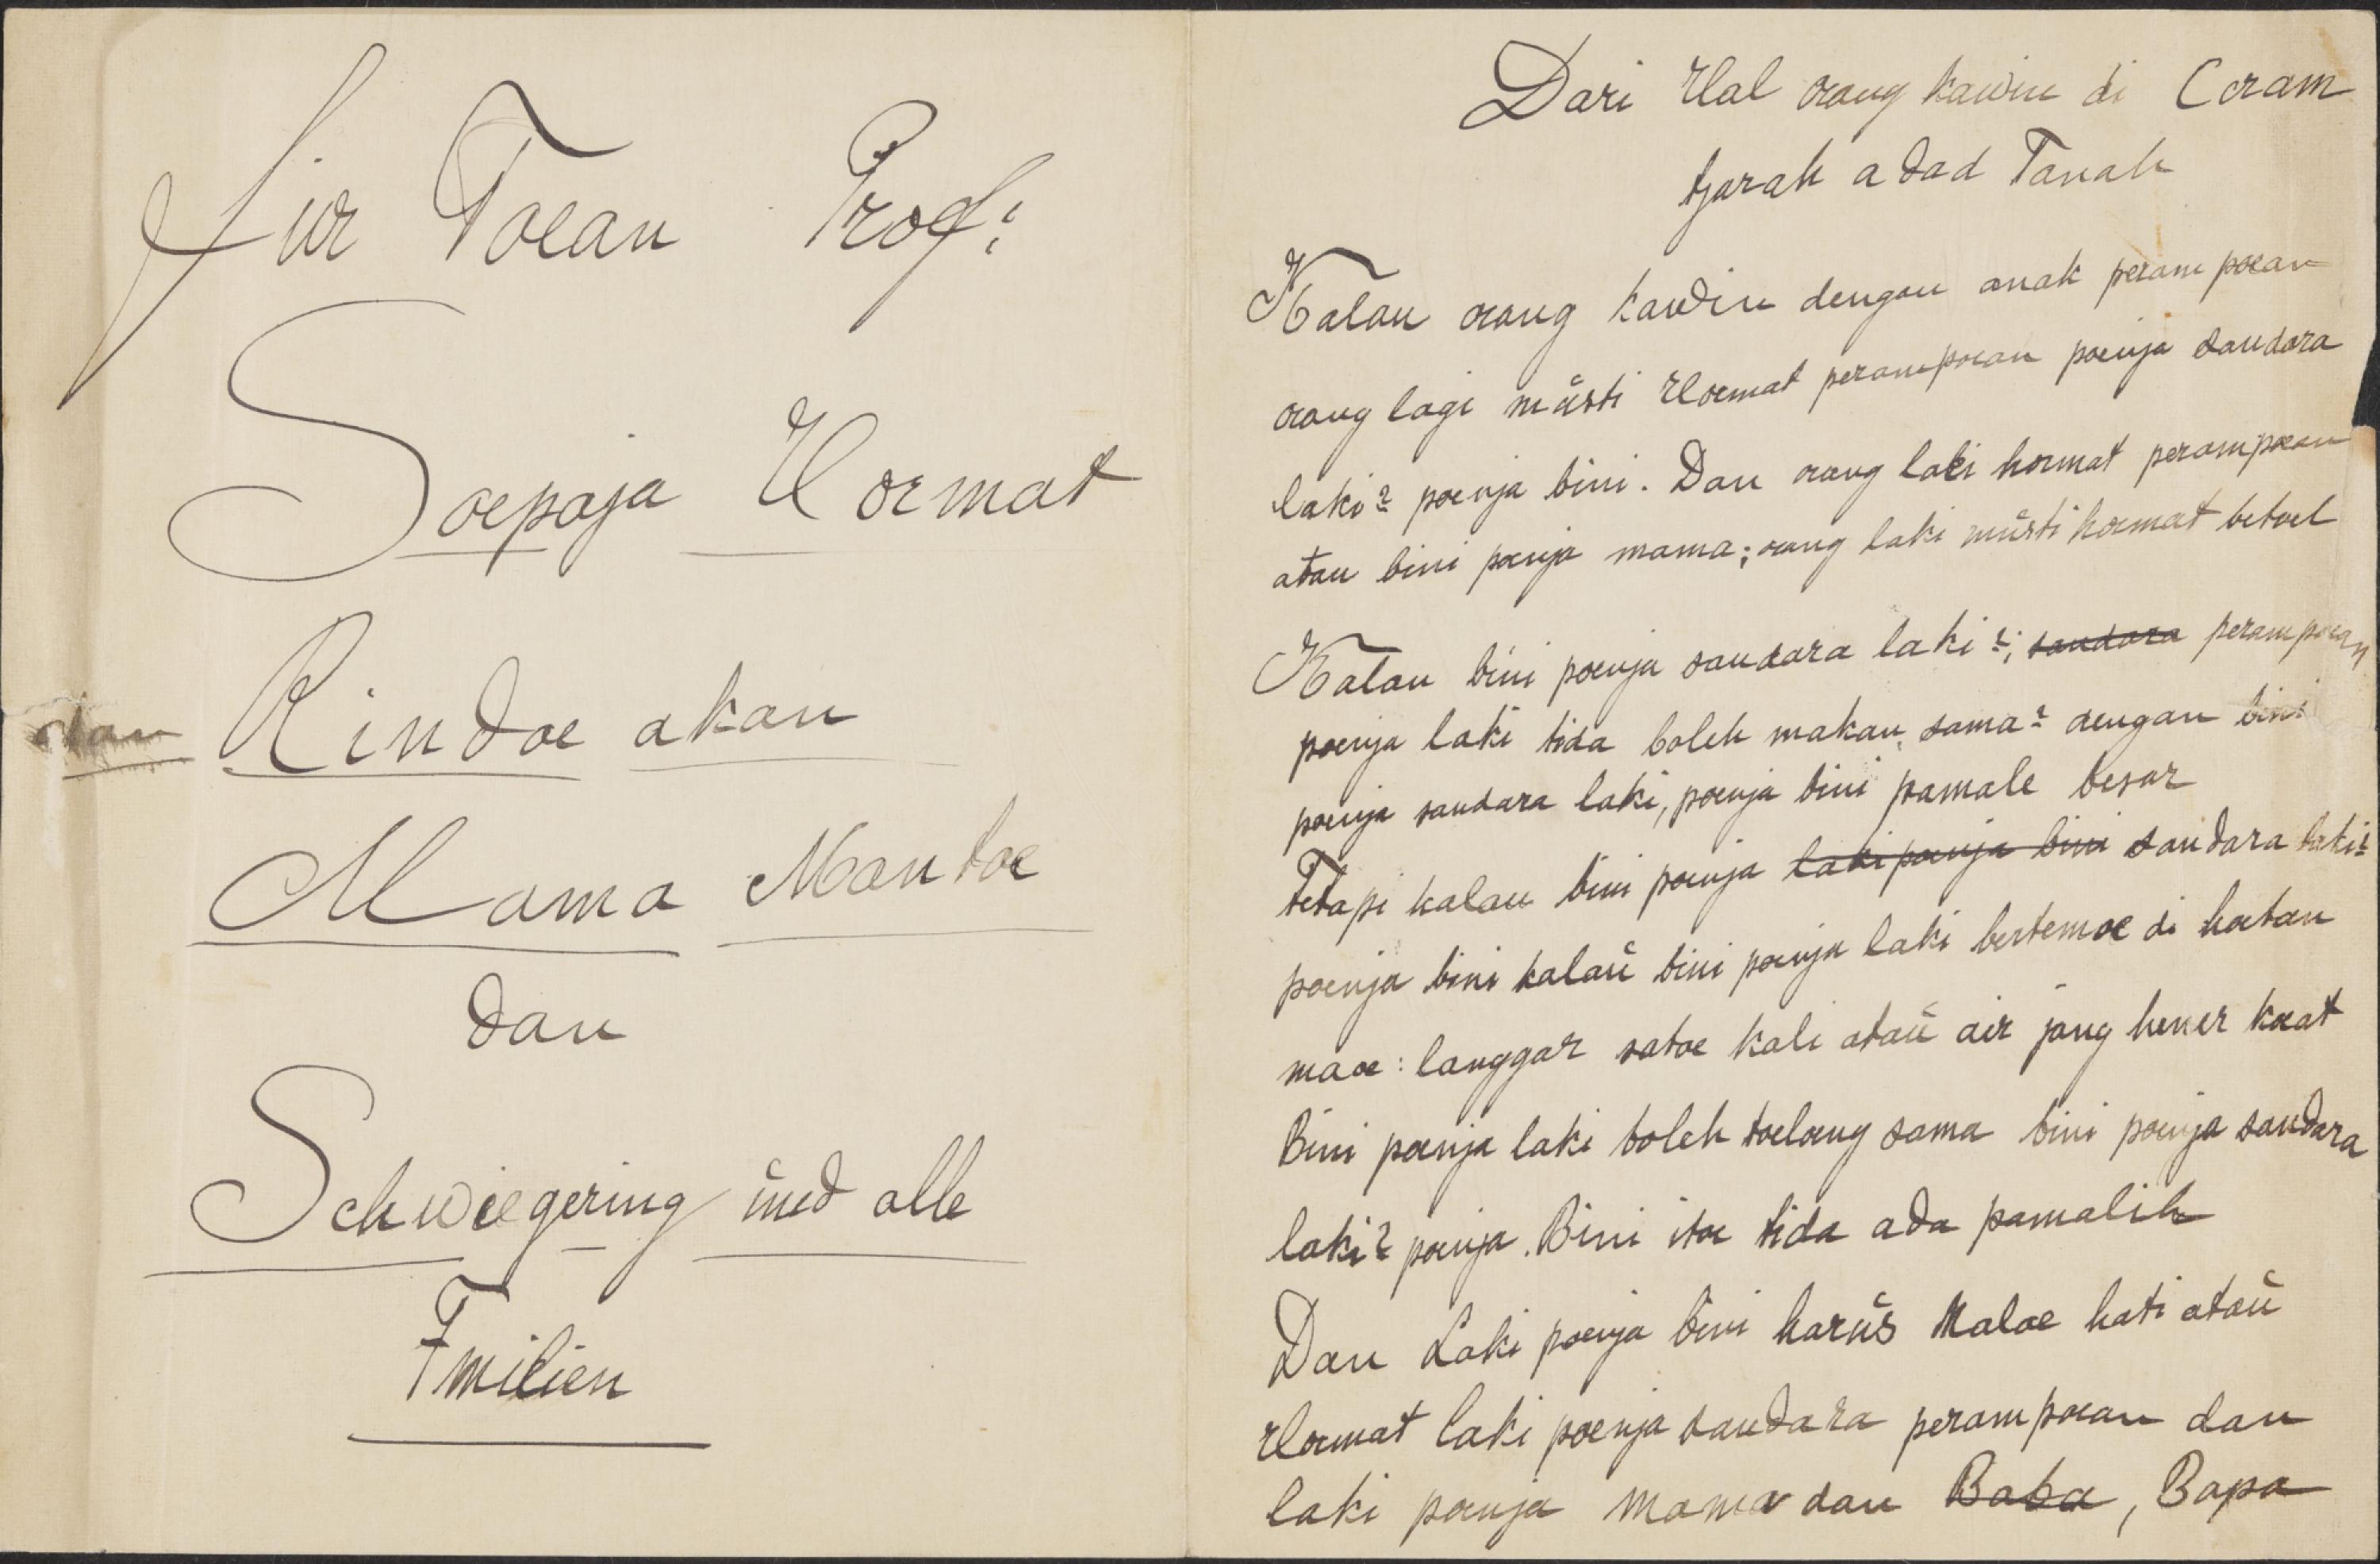 für Toean Prof:
Soepaja Hoermat
dan Rindoe akan
Mama Mantoe
dan
Schwiegering ünd alle
Fmilien
Dari Hal orang kawin di Ceram
tjarah adad Tanah
Kalau orang kawin dengan anak perampoean
orang lagi müsti Hoermat perampoean poenja saudara
laki2 poenja bini. Dan orang laki hormat perampoean
atau bini poenja mama; orang laki müsti hoermat betoel
Kalau bini poenja saudara laki2; saudara perampoean
poenja laki tida boleh makan sama2 dengan bini
poenja saudara laki, poenja bini pamale besar
Tetapi kalau bini poenja laki poenja bini saudara laki2
poenja bini kalaü bini poenja laki bertemoe di hoetan
maoe: langgar satoe kali ataü air jang hener koeat
Bini poenja laki boleh toeloeng sama bini poenja saudara
laki2 poenja. Bini itoe tida ada pamalih
Dan Laki poenja bini harüs Maloe hati ataü
Hoermat laki poenja saudara perampoean dan
laki poenja Mama dan Baba, Bapa